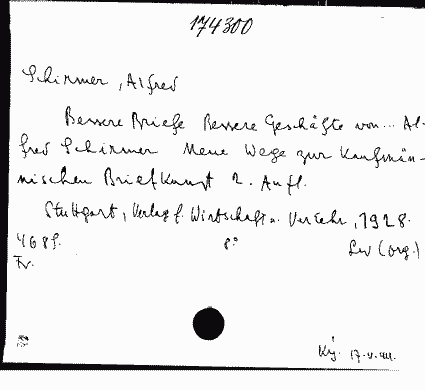 174300
Schirmer, Alfred
Bessere Briefe Bessere Geschäfte von... Al-
fred Schirmer Neue Wege zur Kaufmän-
nischen Briefkunst 2. Aufl.
Stuttgart, Verlag f. Wirtschaft u. Verkehr, 1928.
468 S. 8° Lw (org.)
Fr.
17.V.44.